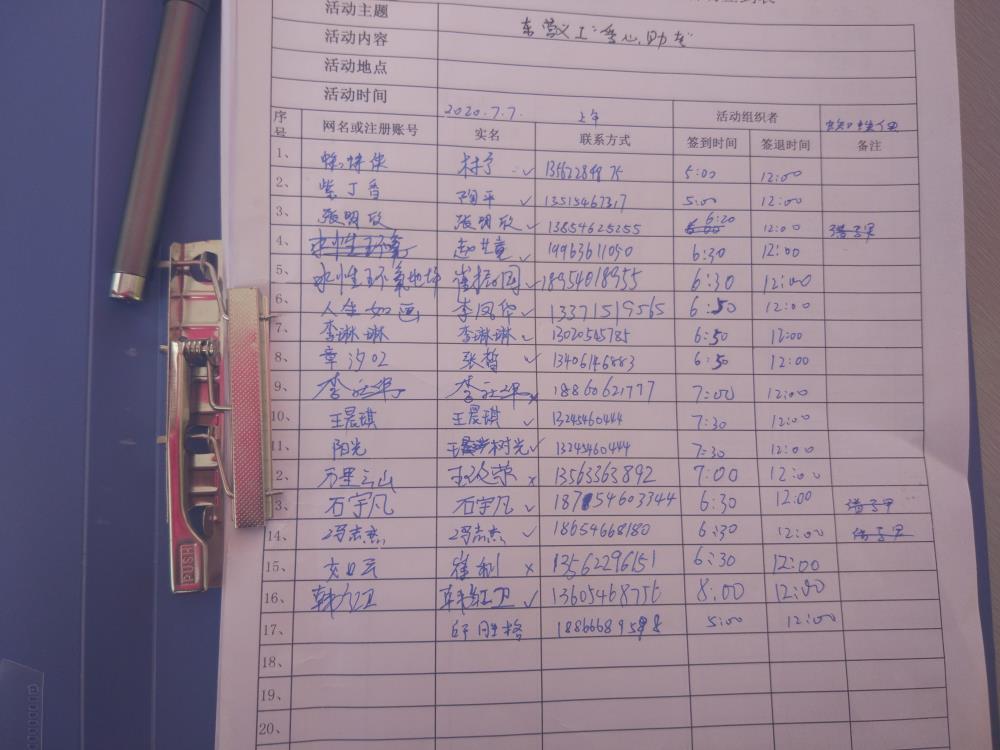 活动主题
活动内容
活动地点
活动时间 2020.7.7. 上午
序号 网名或注册账号 实名 联系方式 活动组织者 签到时间 签退时间 备注
1、 5:00 12:00
2、 紫丁香 陶平 ✓ 13515467317 5:00 12:00
3、 张明欣 张明欣 ✓ 13854625255 6:20 12:00
4、 ✓ 19963611050 6:30 12:00
5、 水性环氧地坪 崔振国 ✓ 18954018955 6:30 12:00
6、 人生如画 李凤华 ✓ 13371519565 6:50 12:00
7、 李琳琳 李琳琳 ✓ 6:50 12:00
8、 章沙02 张哲 ✓ 13406146883 6:50 12:00
9、 × 18860621777 7:00 12:00
10、 王晨琪 王晨琪 ✓ 13245460444 7:30 12:00
11、 阳光 树光 ✓ 13245460444 7:30 12:00
12、 万里云山 × 13563363892 7:00 12:00
13、 石宇凡 石宇凡 ✓ 18754603344 6:30 12:00
14、 冯志杰 冯志杰 ✓ 18654668180 6:30 12:00
15、 崔利 × 13562296151 6:30 12:00
16、 韩红卫 韩红卫 ✓ 13605468756 8:00 12:00
17、 5:00 12:00
18、
19、
20、
PUSH